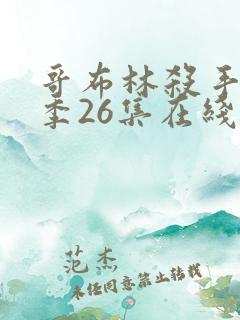 哥布林杀手
季26集在线
范杰
未经同意禁止转载